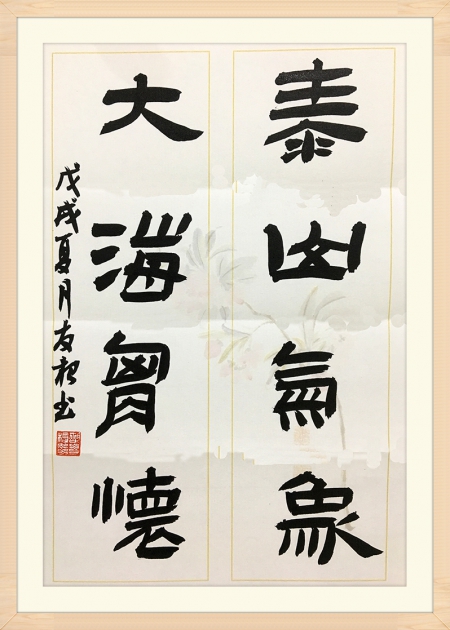 泰山氣象
大海胷懷
戊戌夏月友
书